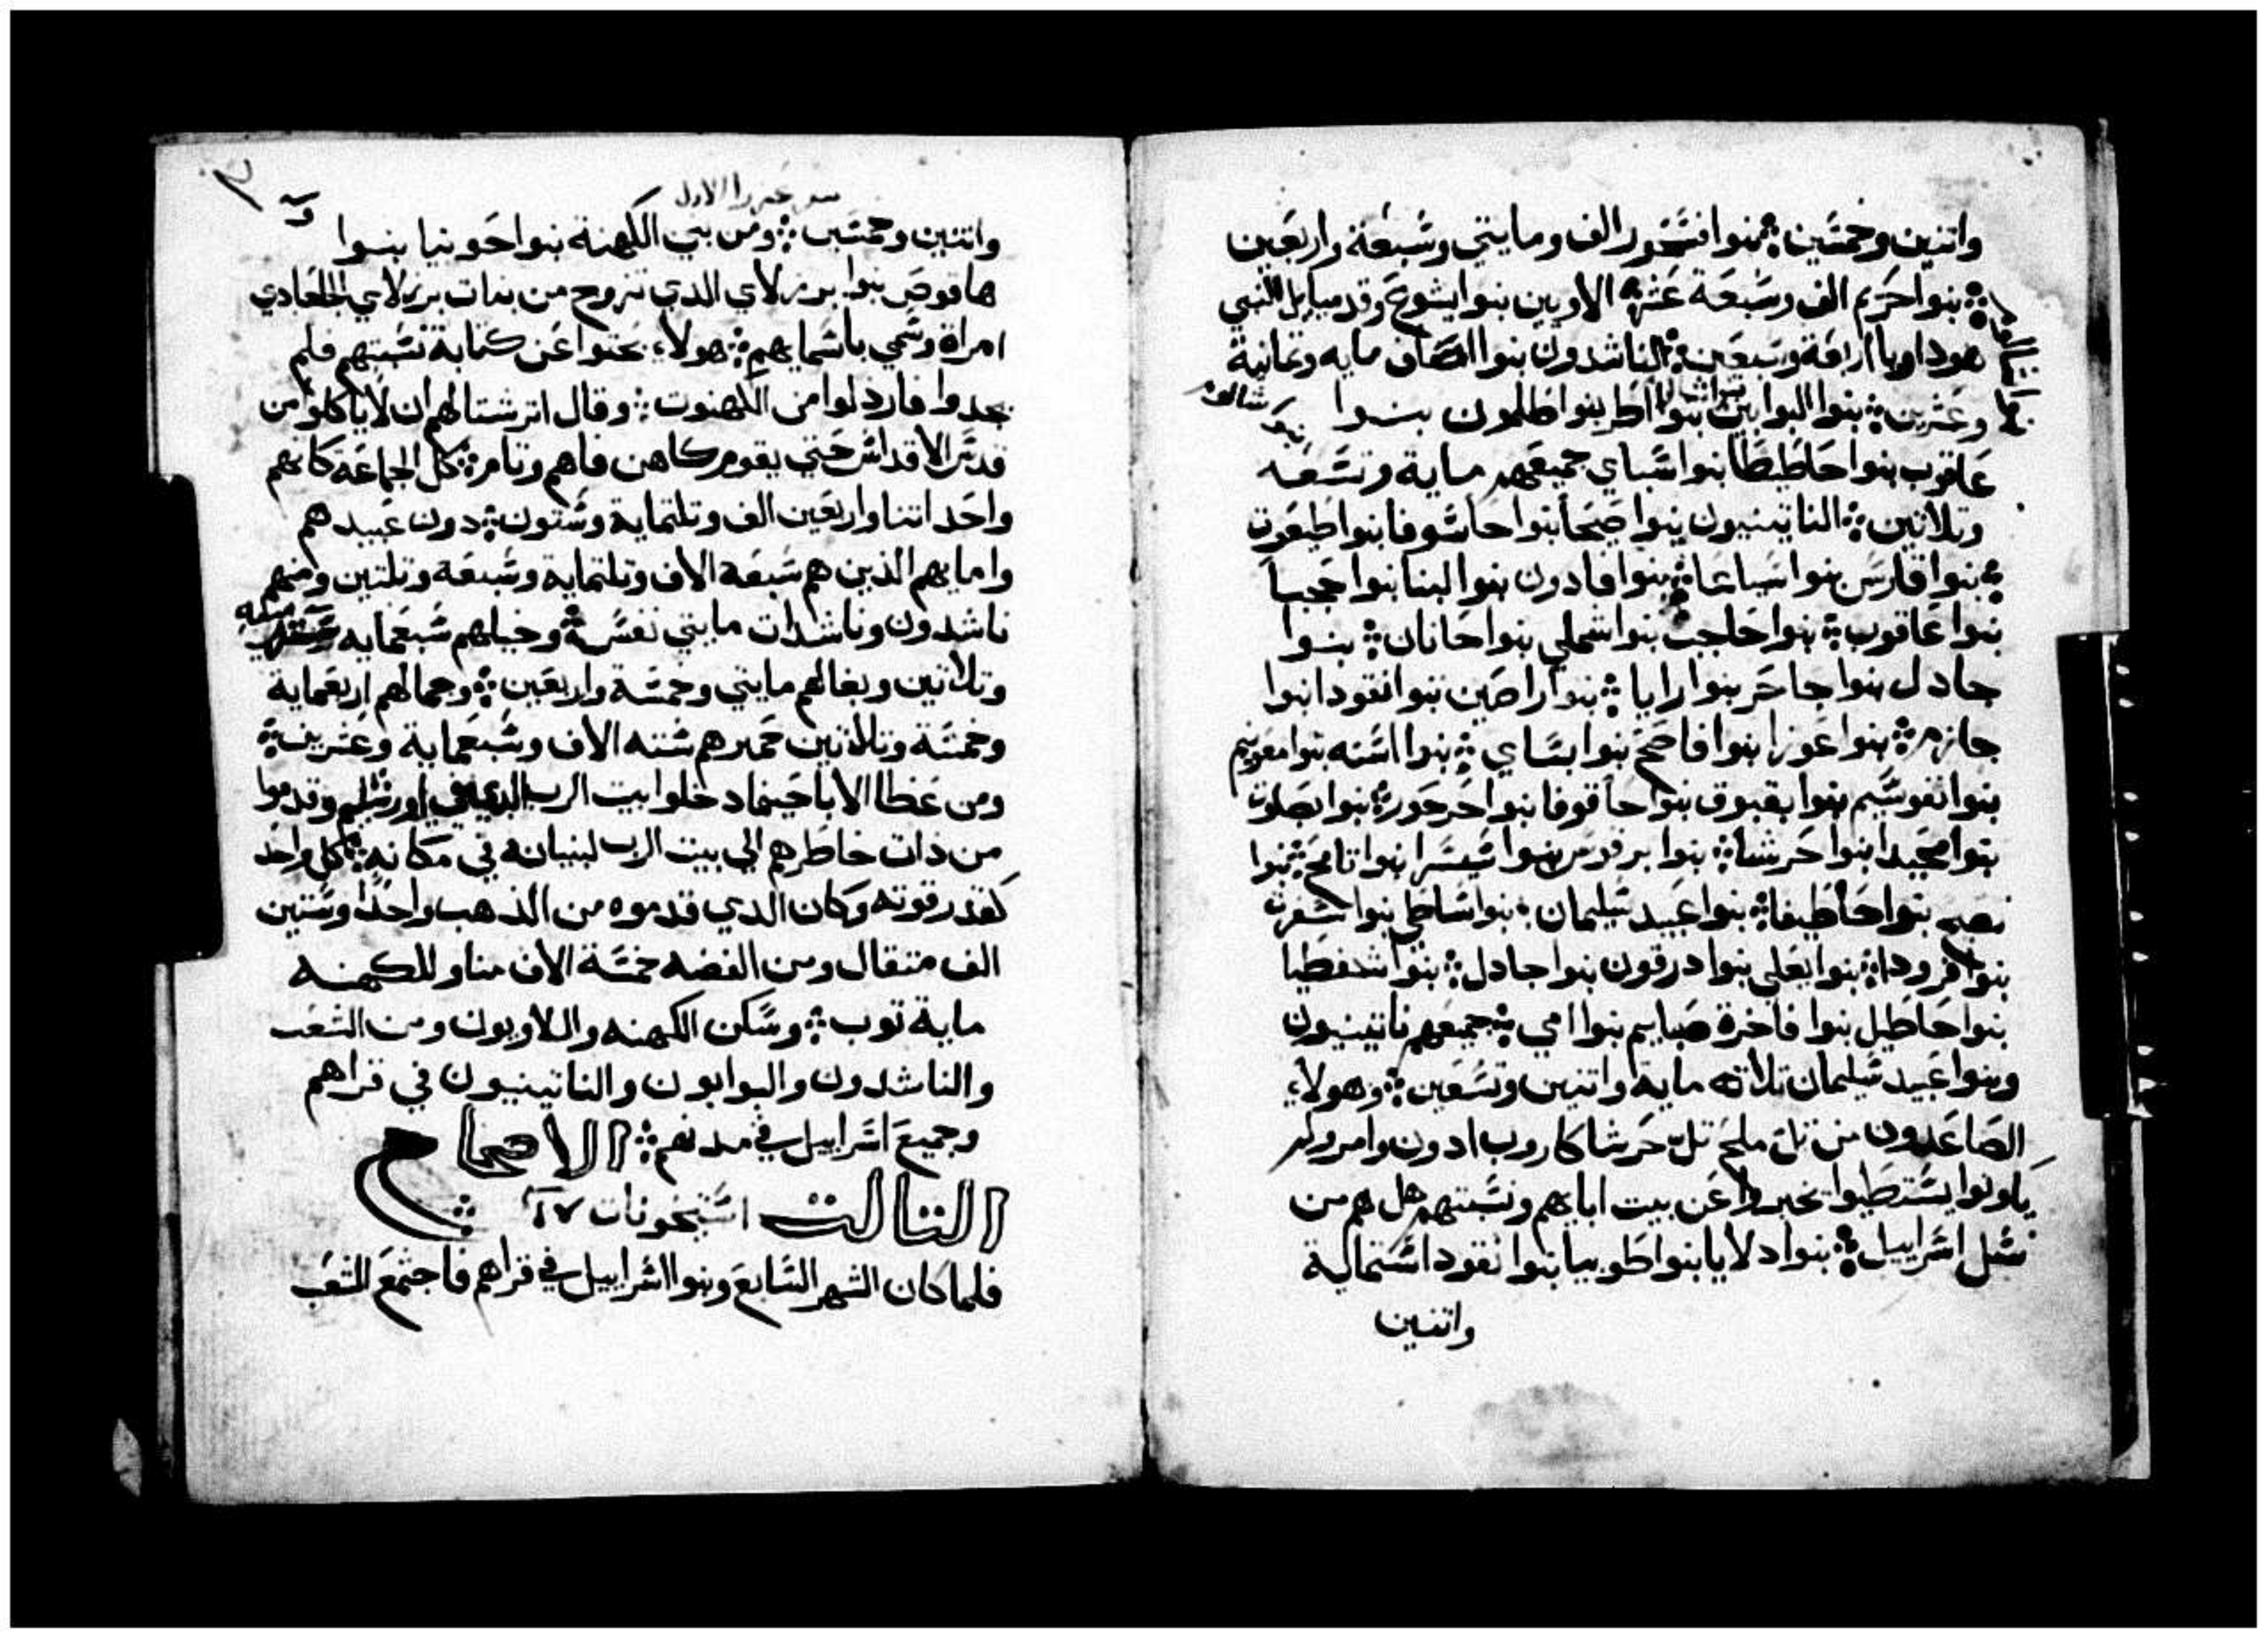 واتنين وخمسين ؞ بنوا فشحور الف ومايتي وسبعة واربعين
؞ بنوا حريم الف وسبعة عشر ؞ الاويين بنوا يشوع وقدمياييل النبي
هوداويا اربعة وسبعين ؞ الناشدون بنوا اصاف مايه وتمانية
وعشرين ؞ بنوا البوابين بنوا اطر بنوا طلمون بنوا
عاقوب بنوا حاطيطا بنوا شباي جميعهم ماية وتسعه
وتلاتين ؞ الناتينيون بنوا صيحا بنوا حاسوفا بنوا طيعوت
؞ بنوا قارس بنوا سياعا ؞ بنوا فادون بنوا لبنا بنوا حجبا
بنوا عاقوب ؞ بنوا حاجب بنوا شملي بنوا حانان ؞ بنوا
جادل بنوا جاحر بنوا رايا ؞ بنوا راصين بنوا نقودا بنوا
جازم ؞ بنوا عوزا بنوا فاصح بنوا بساي ؞ بنوا اسنه بنوا معونيم
بنوا نفوسيم بنوا بقبوق بنوا حاقوفا بنوا حرحور ؞ بنوا بصلوت
بنوا محيدا بنوا حرشا ؞ بنوا برقوس بنوا سيسرا بنوا تامح ؞ بنوا
نصيه بنوا حاطيفا ؞ بنوا عبيد سليمان ؞ بنوا ساطي بنوا سفرت
بنوا فرودا ؞ بنوا يعلي بنوا درقون بنوا جادل ؞ بنوا شفطيا
بنوا حاطيل بنوا فاخرة صباييم بنوا امي ؞ جميعهم ناتينيون
وبنوا عبيد سليمان تلاته ماية واتنين وتسعين ؞ وهولاء
الصاعدون من تل ملح تل حرشا كاروب ادون وامر ولم
يكونوا يستطيعوا تخبروا عن بيت ابايهم ونسبتهم هل هم من
نسل اسراييل ؞ بنوا دلايا بنوا طوبيا بنوا نقودا ستماية
واتنين
سفر عزرا الاول
واتنين وخمسين ؞ ومن بني الكهنة بنوا حوبيا بنوا
هاقوص بنوا برزلاي الدي تزوج من بنات برزلاي الجلعادي
امراة وسمي باسمايهم ؞ هولاء بحتوا عن كتابة نسبتهم فلم
يجدوا فاردلوا من الكهنوت ؞ وقال اترشتا لهم ان لا ياكلوا من
قدس الاقداس حتي يقوم كاهن فاهم وتامر ؞ كل الجماعة كانهم
واحد اتنا واربعين الف وتلتماية وستون ؞ دون عبيدهم
وامايهم الذين هم سبعة الاف وتلتماية وسبعة وتلتين ومنهم
ناشدون وناشدات مايتي نفس ؞ وخيلهم سبعمايه وسته
وتلاتين وبغالهم مايتي وخمسة واربعين ؞ وجمالهم اربعماية
وخمسة وتلاتين حميرهم سته الاف وسبعماية وعشرين ؞
ومن عظما الابا حينما دخلوا بيت الرب الدي في اورشليم وقدموا
من دات خاطرهم الي بيت الرب لبنيانه في مكانه ؞ كل واحد
كقدر قوته وكان الدي قدموه من الذهب واحدا وستين
الف متقال ومن الفضه خمسة الاف منا وللكهنه
ماية توب ؞ وسكن الكهنه واللاويون ومن الشعب
والناشدون والبوابون والناتينيون في قراهم
وجميع اسراييل في مدنهم ؞ الاصحاح
التالت استيخونات ١٧ ؞
فلما كان الشهر السابع وبنوا اسراييل في قراهم فاجتمع الشعب